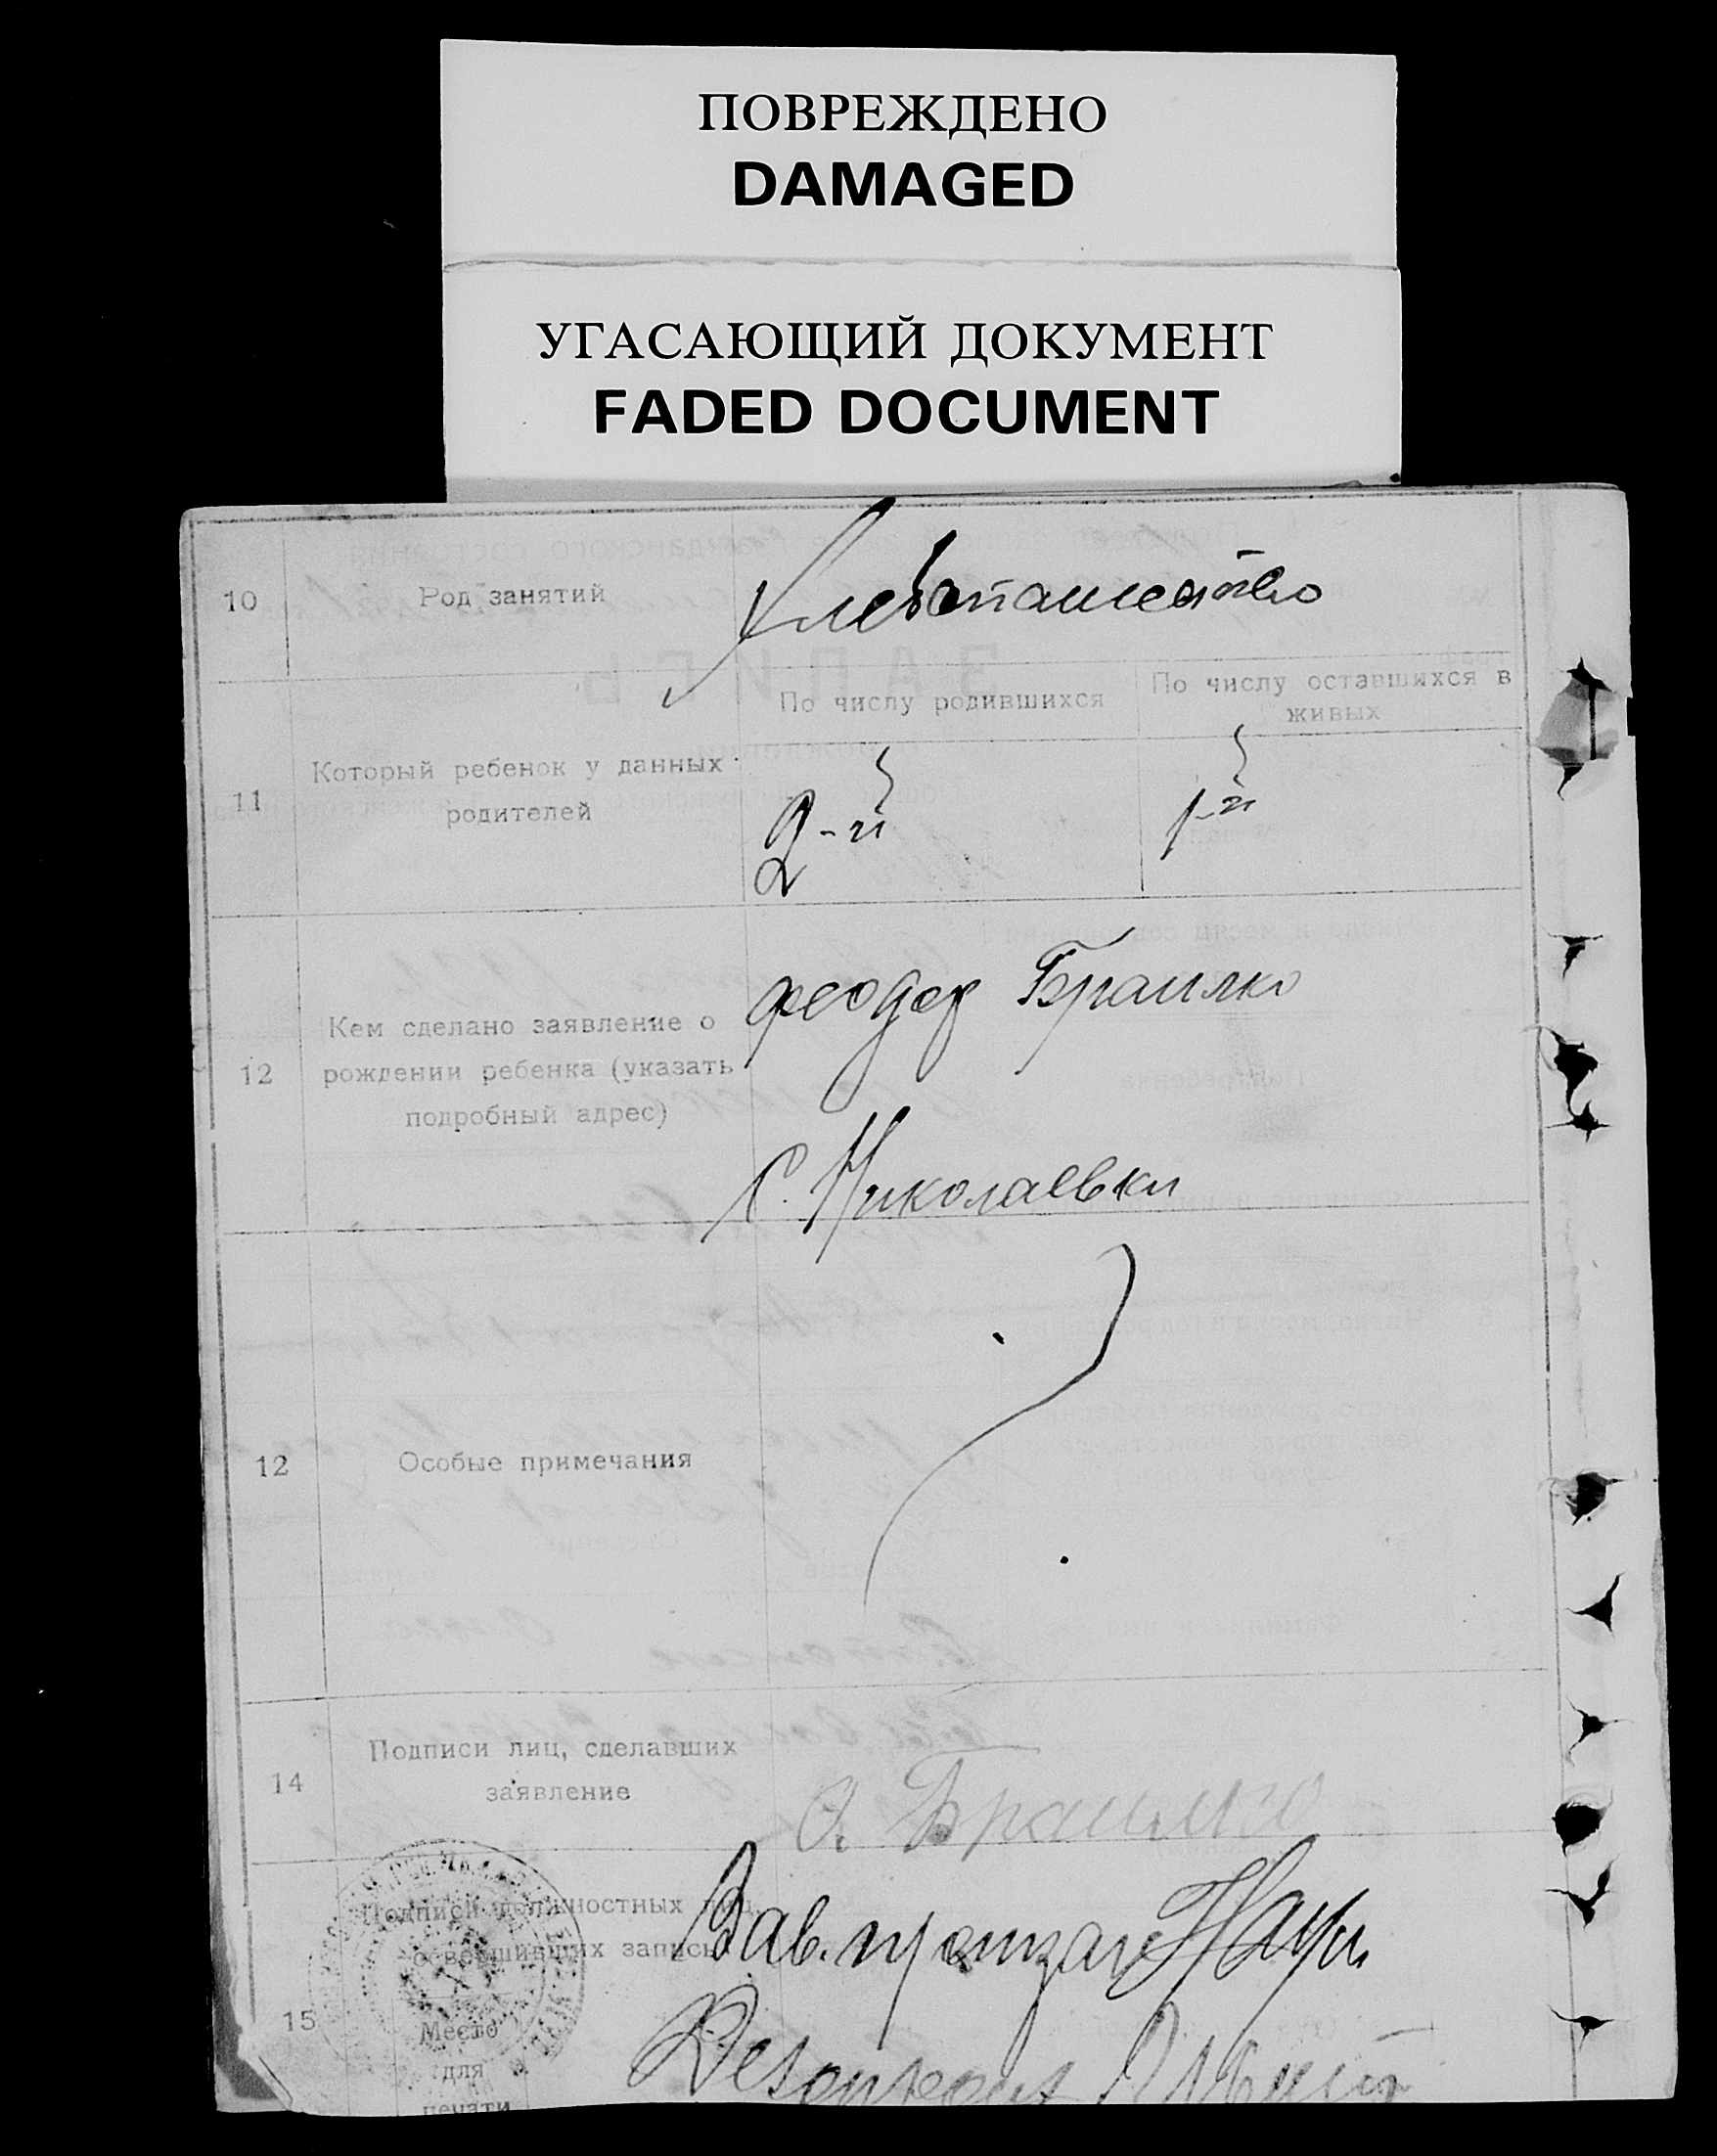 ПОВРЕЖДЕНО
DAMAGED
УГАСАЮЩИЙ ДОКУМЕНТ
FADED DOCUMENT
10 Род занятий Хлебопашество
По числу родившихся По числу оставшихся в живых
11 Который ребенок у данных родителей 2-й 1-й
12 Кем сделано заявление о рождении ребенка (указать подробный адрес) Феодор Браилко
С. Николаевки
12 Особые примечания
14 Подписи лиц, сделавших заявление Браилко
15 Подписи должностных лиц, совершивших запись Зав.
Место
для
печати
Делопроизв